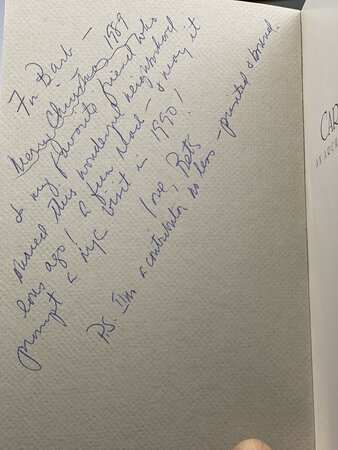 For Barb –
Merry Christmas 1989
to my favorite friend who
shared this wonderful neighborhood
eons ago! A fun read – & may it
prompt a NYC visit in 1990!
Love, Bets
P.S. I'm a contributor no less – printed & bound.
CAR
AN ARCH